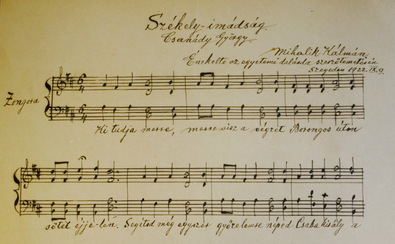 Székely-imádság
Csanády György
Mihalik Kálmán
Énekelte az egyetemi dalárda szeretettel
Szegeden 1922.
Zongora
Ki tudja merre, merre visz a végzet Borongós úton
sötét éjjelen. Segítsd még egyszer győzelemre néped Csaba király a